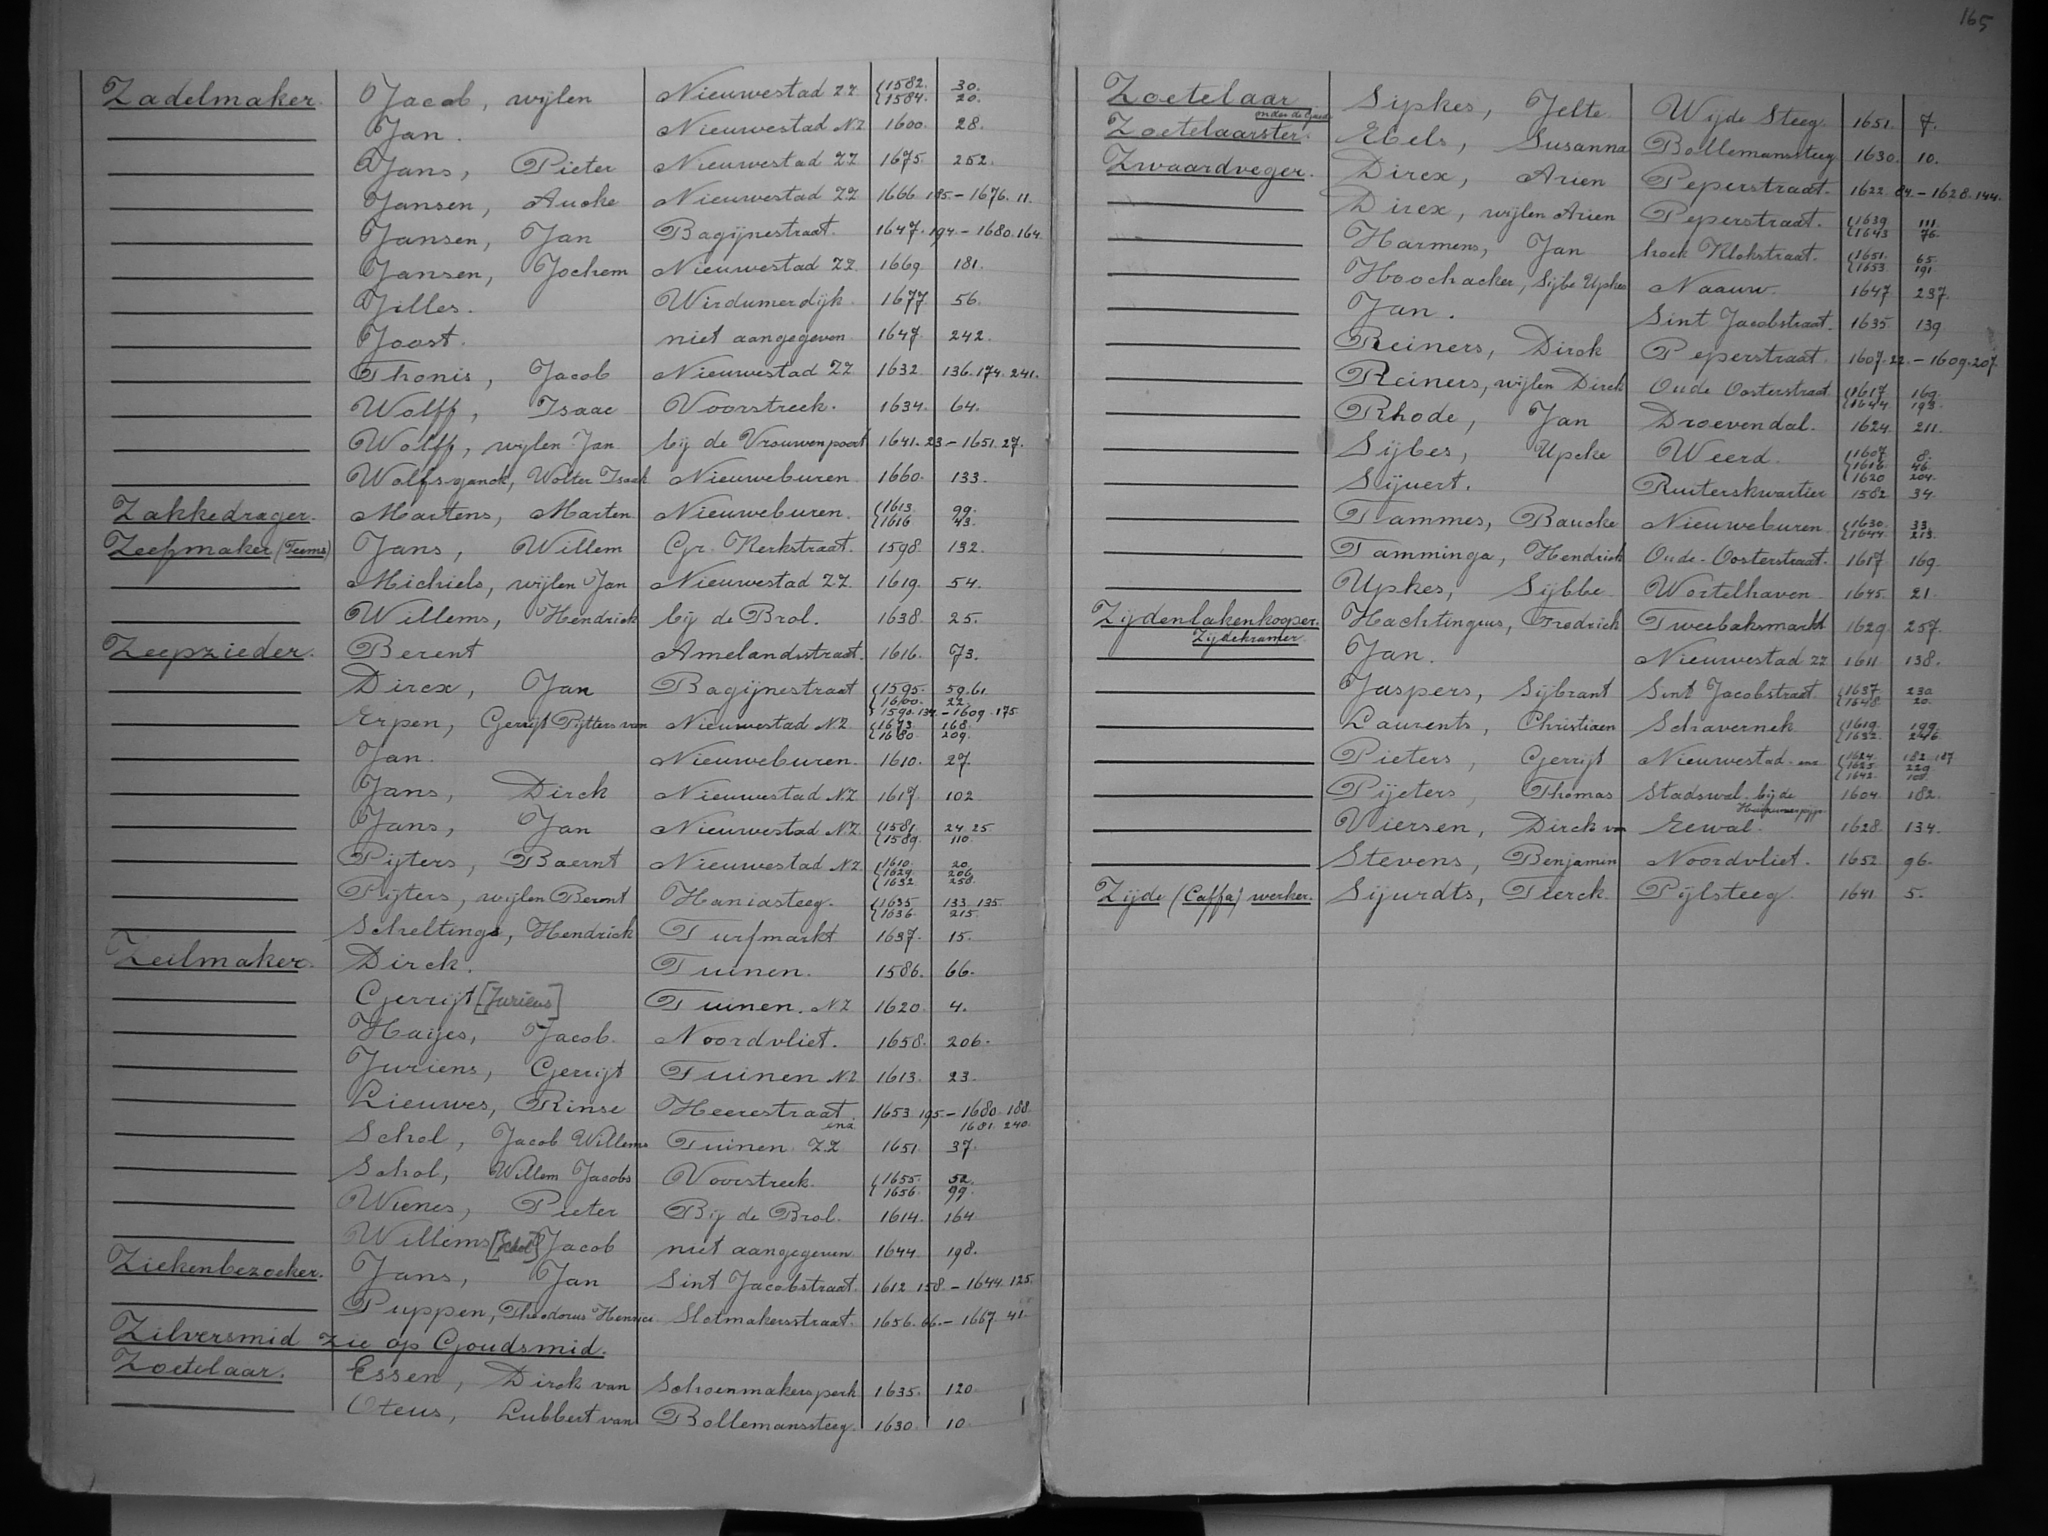 165
Zadelmaker. Jacob, wijlen Nieuwestad ZZ {1582. 30.
{1584. 20.
Jan. Nieuwestad NZ 1600. 28.
Jans, Pieter Nieuwestad ZZ 1675. 252.
Jansen, Aucke Nieuwestad ZZ 1666. 185 – 1676. 11.
Jansen, Jan Bagijnestraat. 1647. 194. – 1680. 164.
Jansen, Jochem Nieuwestad ZZ 1669. 181.
Jilles. Wirdumerdijk. 1677. 56.
Joost. niet aangegeven 1647. 242.
Thonis, Jacob Nieuwestad ZZ 1632 136. 174. 241.
Wolff, Isaac Voorstreek. 1634. 64.
Wolff, wijlen Jan bij de Vrouwenpoort 1641. 23 – 1651. 27.
Wolfsganck, Wolter Isack Nieuweburen 1660. 133.
Zakkedrager. Martens, Marten Nieuweburen. {1613. 99.
{1616 43.
Zeefmaker (Teems) Jans, Willem Gr. Kerkstraat. 1598. 132.
Michiels, wijlen Jan Nieuwestad ZZ 1619. 54.
Willems, Hendrick bij de Brol. 1638. 25.
Zeepzieder. Berent Amelandsstraat. 1616. 73.
Direx, Jan Bagijnestraat {1595. 59. 61.
{1600. 22.
Erpen, Gerrijt Pijtters van Nieuwestad NZ. {1590. 134. – 1609. 175.
{1673. 168.
{1680. 209.
Jan. Nieuweburen. 1610. 27.
Jans, Dirck Nieuwestad NZ. 1617. 102
Jans, Jan Nieuwestad NZ. {1581. 24. 25.
{1589. 110.
Pijters, Baernt Nieuwestad NZ {1610. 20.
{1629. 206.
{1632. 258.
Pijters, wijlen Berent Haniasteeg. {1635. 133. 135.
{1636. 215.
Scheltinga, Hendrick Turfmarkt 1637. 15.
Zeilmaker. Dirck. Tuinen. 1586. 66.
Gerrijt [Juriens] Tuinen. NZ 1620. 4.
Hayes, Jacob. Noordvliet. 1658. 206.
Juriens, Gerrijt Tuinen NZ 1613. 23.
Lieuwes, Rinse Heerestraat. enz 1653. 195. – 1680. 188.
1681. 240.
Schol, Jacob Willems Tuinen ZZ 1651. 37.
Schol, Willem Jacobs Voorstreek. {1655. 52.
{1656. 99.
Wienes, Pieter Bij de Brol. 1614. 164.
Willems [Schol] Jacob niet aangegeven 1644. 198.
Ziekenbezoeker. Jans, Jan Sint Jacobstraat. 1612. 158. – 1644. 125.
Puppen, Theodorus Slotmakersstraat. 1656. 66. – 1667. 41.
Zilversmid zie op Goudsmid.
Zoetelaar. Essen, Dirck van Schoenmakersperk 1635. 120.
Oteus, Lubbert van Bollemanssteeg. 1630. 10
Zoetelaar Sipkes, Jelte Wijde Steeg. 1651. 7.
Zoetelaarster. Ebels, Susanna Bollemanssteeg 1630. 10.
Zwaardveger. Direx, Arien Peperstraat. 1622. 84. – 1628. 144.
Direx, wijlen Arien Peperstraat. {1639 111.
{1643 76.
Harmens, Jan hoek Klokstraat. {1651. 65.
{1653. 191.
Hoochacker, Sijbe Upkes Naauw. 1647. 237.
Jan. Sint Jacobstraat. 1635. 139
Reiners, Dirck Peperstraat. 1607. 22. – 1609. 207.
Reiners, wijlen Dirck Oude Oosterstraat {1617. 169.
{1644. 193.
Rhode, Jan Droevendal. 1624. 211.
Sijbes, Upcke Weerd. {1607. 8.
{1616. 46.
{1620 204.
Sijuert. Ruiterskwartier 1582. 34.
Tammes, Baucke Nieuweburen {1630. 33.
{1644. 213.
Tamminga, Hendrick Oude-Oosterstraat. 1617. 169.
Upkes, Sijbbe Wortelhaven. 1645. 21.
Zijdenlakenkooper. Hachtingius, Fredrick Tweebaksmarkt 1629. 257.
Zijdekramer. Jan. Nieuwestad ZZ 1611 138.
Jaspers, Sijbrant Sint Jacobstraat. {1637. 230.
{1648. 20.
Laurents, Christiaen Schavernek. {1619. 199.
{1632. 246.
Pieters, Gerrijt Nieuwestad. enz {1624. 182. 187
{1625. 229.
{1642. 108.
Pijeters, Thomas Stadswal. bij de 1604. 182.
Viersen, Dirck van Eewal. 1628. 134.
Stevens, Benjamin Noordvliet. 1652. 96.
Zijde (Caffa) werker. Sijurdts, Tierck. Pijlsteeg. 1641. 5.